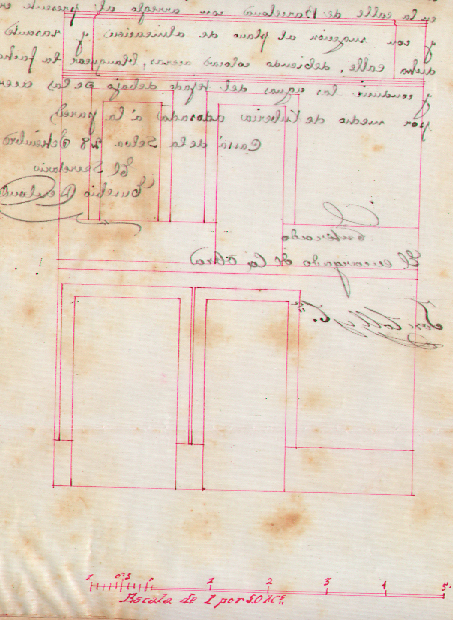 en la calle de Barcelona con arreglo al presente
y con sugecion al plano de alineacion y rasante
dicha calle, debiendo colocar aceras, blanquear la facha
y conducir las aguas del tejado debajo de las aceras
por medio de tuberia adosada á la pared
Cassá de la Selva 28
El Secretario
Eusebio
El encargado de la obra
José Coll y
1 0'5 1 2 3 4 5
Escala de 1 por 50